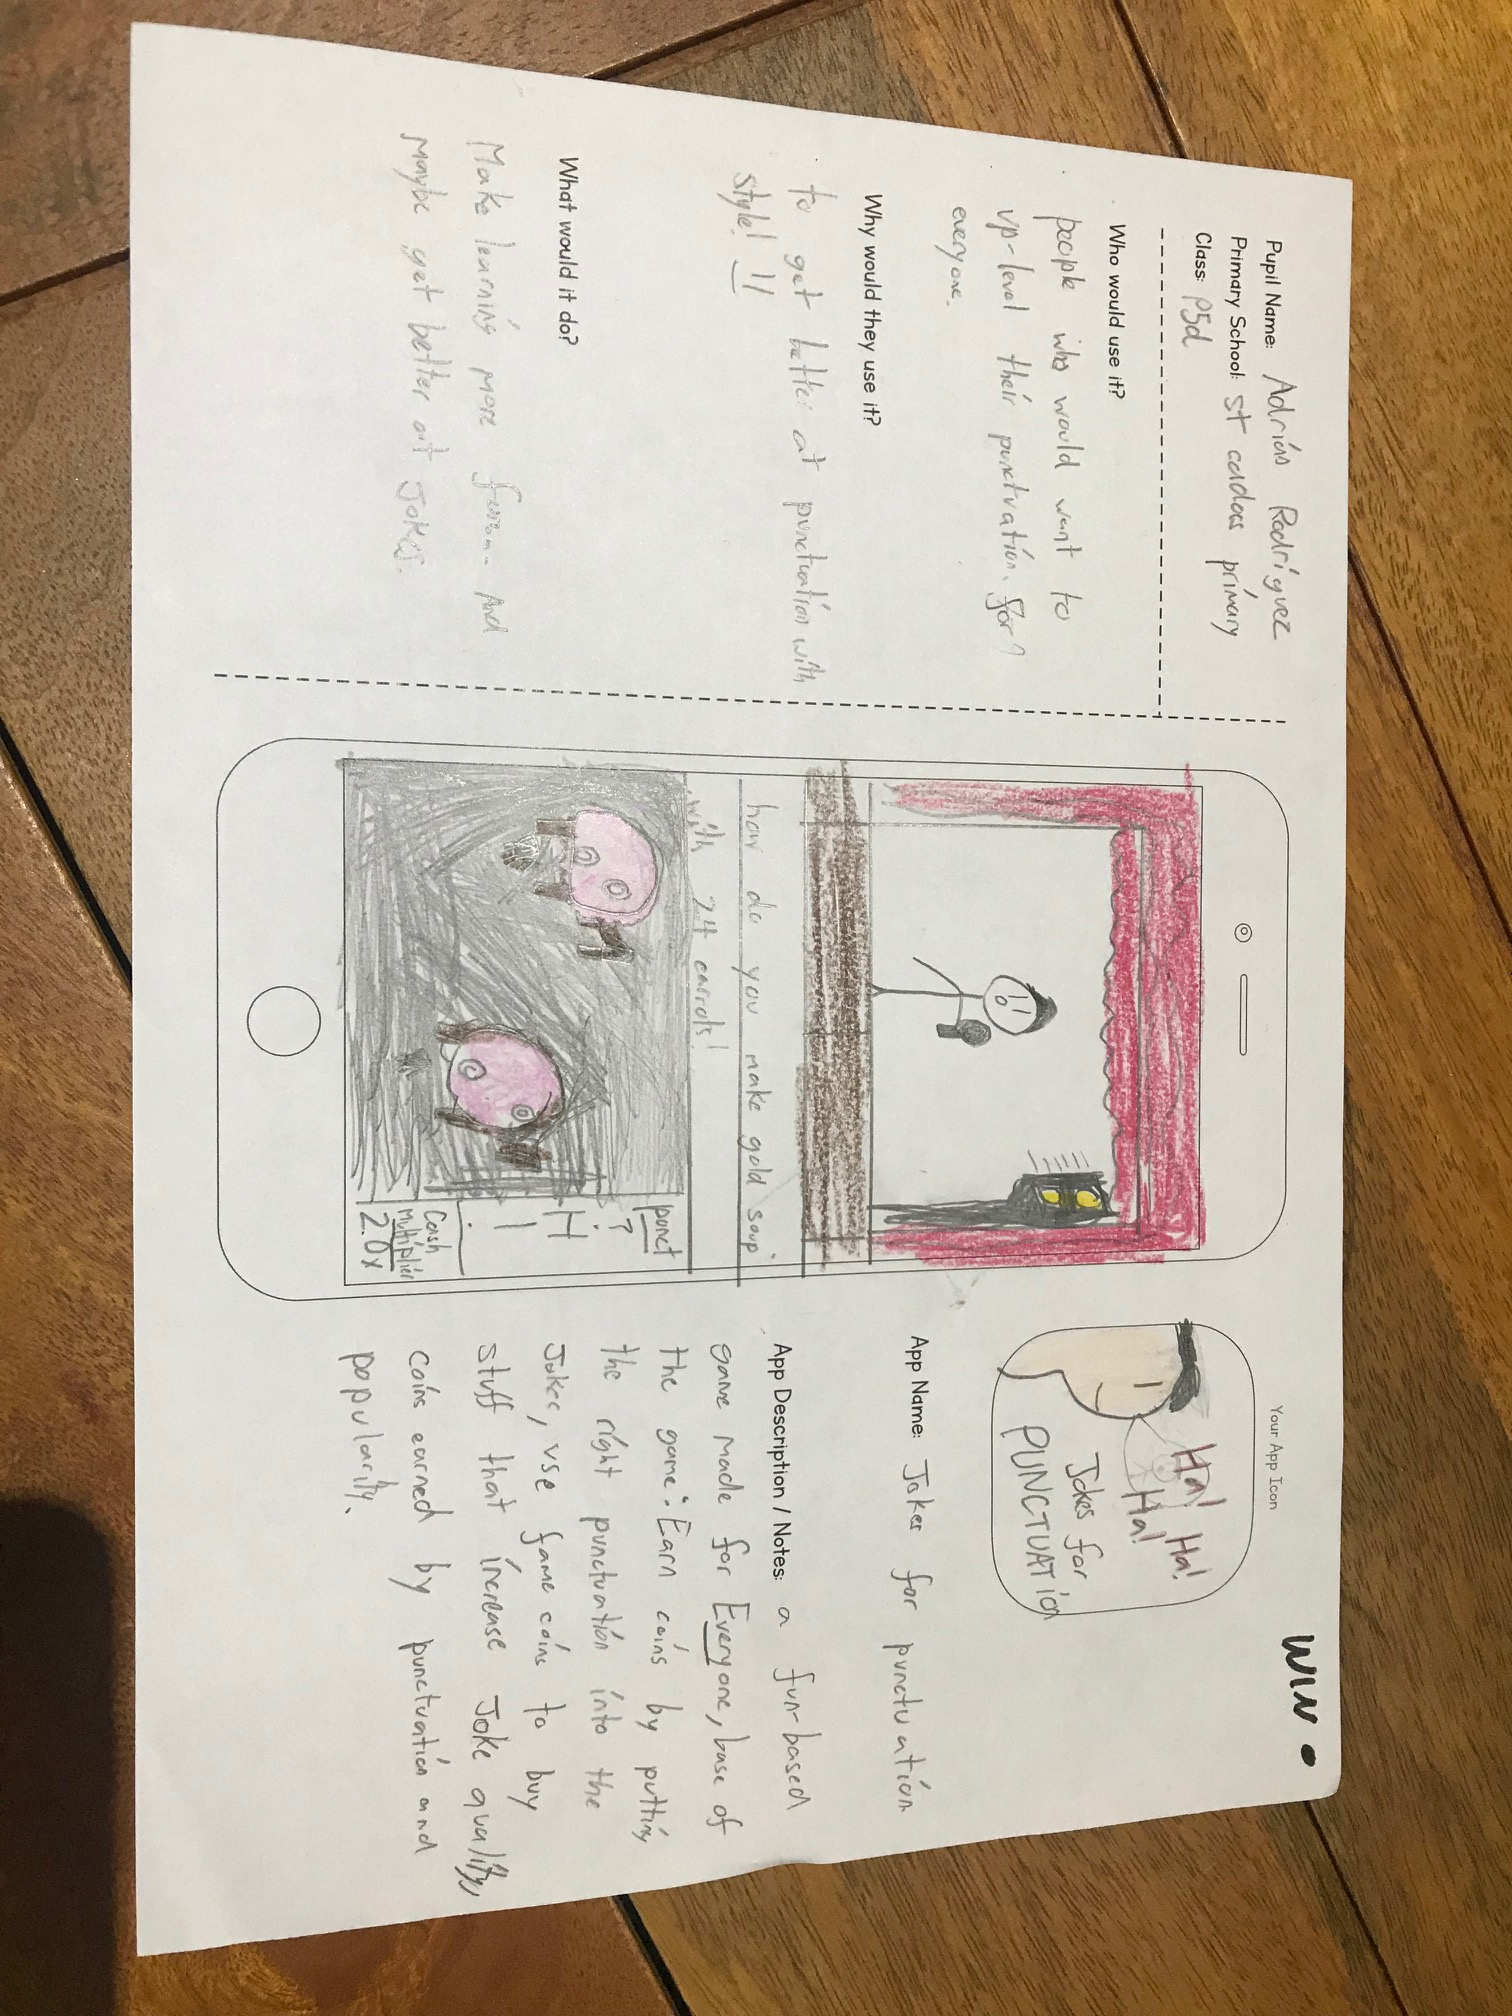 Pupil Name: Adrián Rodríguez
Primary School: St cadocs primary
Class: P5d
Who would use it?
people who would want to
up-level their punctuation. for
everyone.
Why would they use it?
to get better at punctuation with
style! !!
What would it do?
Make learning more fun... And
maybe get better at Jokes.
how do you make gold soup
with 24 carrots!
punct
?
!
.
Cash
multiplier
2.0x
Your App Icon
Ha! Ha!
Ha!
Jokes for
PUNCTUATION
WIN
App Name: Jokes for punctuation
App Description / Notes: a fun-based
game made for Everyone, base of
the game: Earn coins by putting
the right punctuation into the
Jokes, use fame coins to buy
stuff that increase Joke quality,
coins earned by punctuation and
popularity.